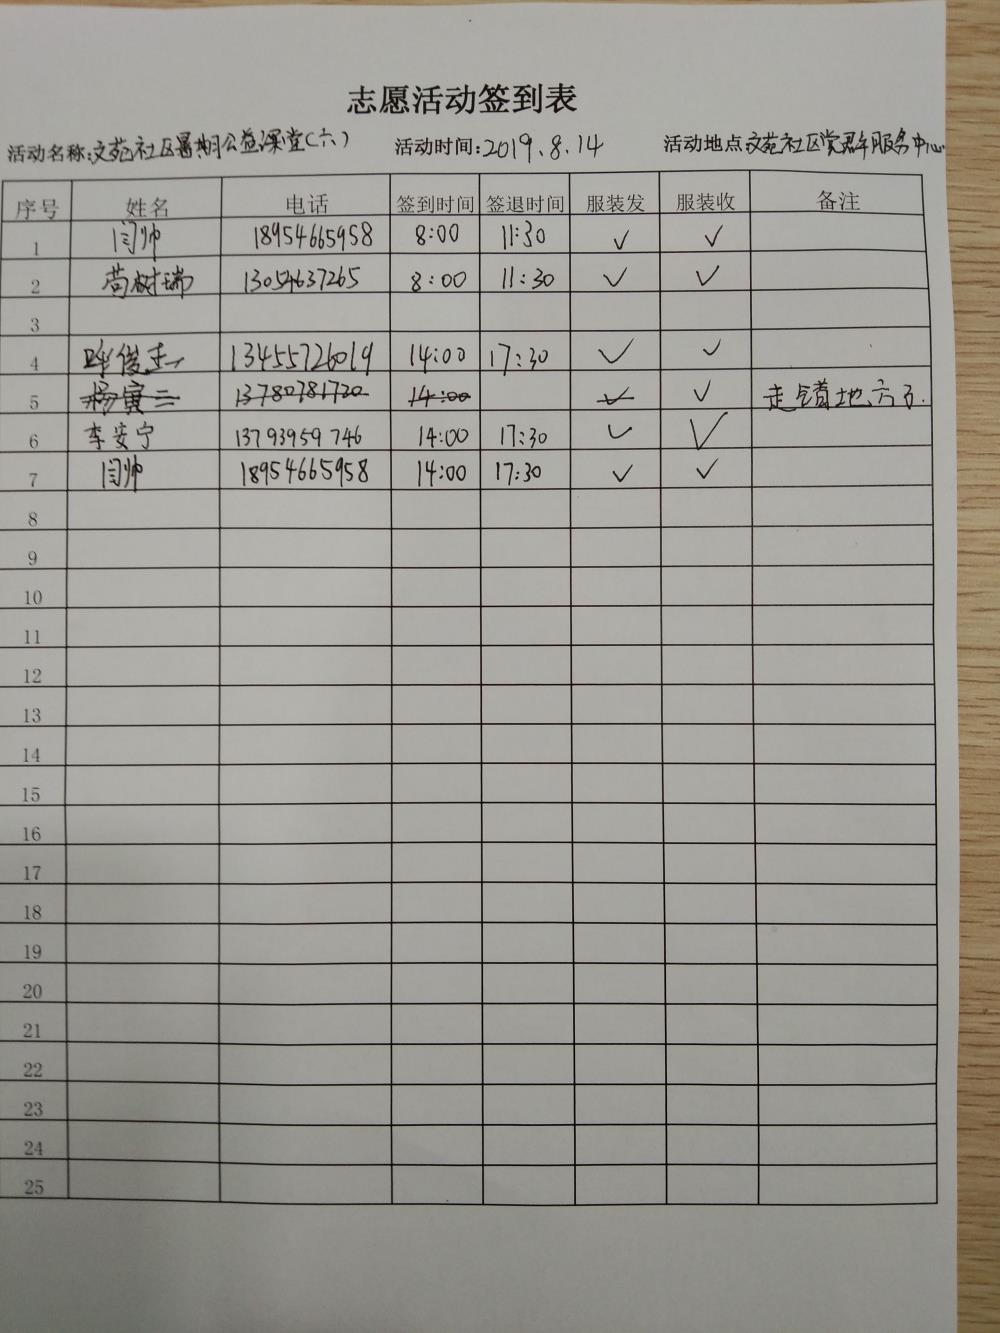 志愿活动签到表
活动名称:文苑社区暑期公益课堂(六) 活动时间:2019.8.14 活动地点文苑社区党群服务中心
序号 姓名 电话 签到时间 签退时间 服装发 服装收 备注
1 闫帅 18954665958 8:00 11:30 ✓ ✓
2 苟树瑞 13054637265 8:00 11:30 ✓ ✓
3
4 13455726019 14:00 17:30 ✓ ✓
5 杨寅三 13780781720 14:00 ✓ ✓ 走错地方了.
6 李安宁 13793959746 14:00 17:30 ✓ ✓
7 闫帅 18954665958 14:00 17:30 ✓ ✓
8
9
10
11
12
13
14
15
16
17
18
19
20
21
22
23
24
25